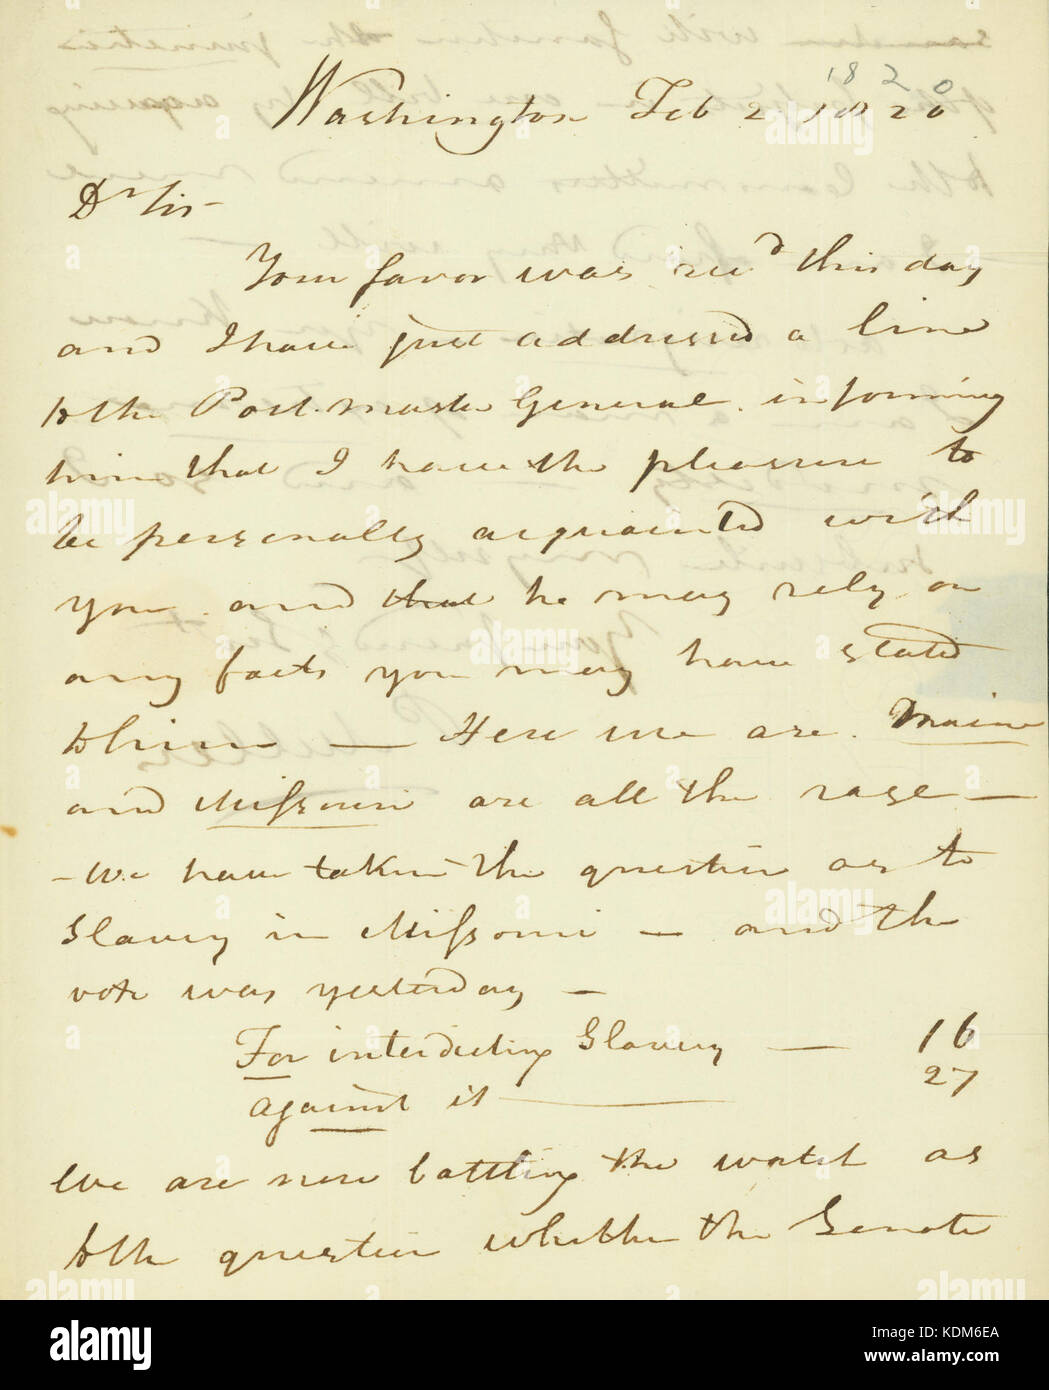 1820
Washington Feb 2. 1820
Dr Sir -
Your favor was recd this day
and I have just addressed a line
to the Post. Master General. informing
him that I have the pleasure to
be personally acquainted with
you. and that he may rely on
any facts you may have stated
to him — Here we are. Maine
and Missouri are all the rage —
- We have taken the question as to
Slavery in Missouri — and the
vote was yesterday —
For interdicting Slavery — 16
against it — 27
We are now battling the watch as
to the question whether the Senate
alamy
alamy
Image ID: KDM6EA
www.alamy.com